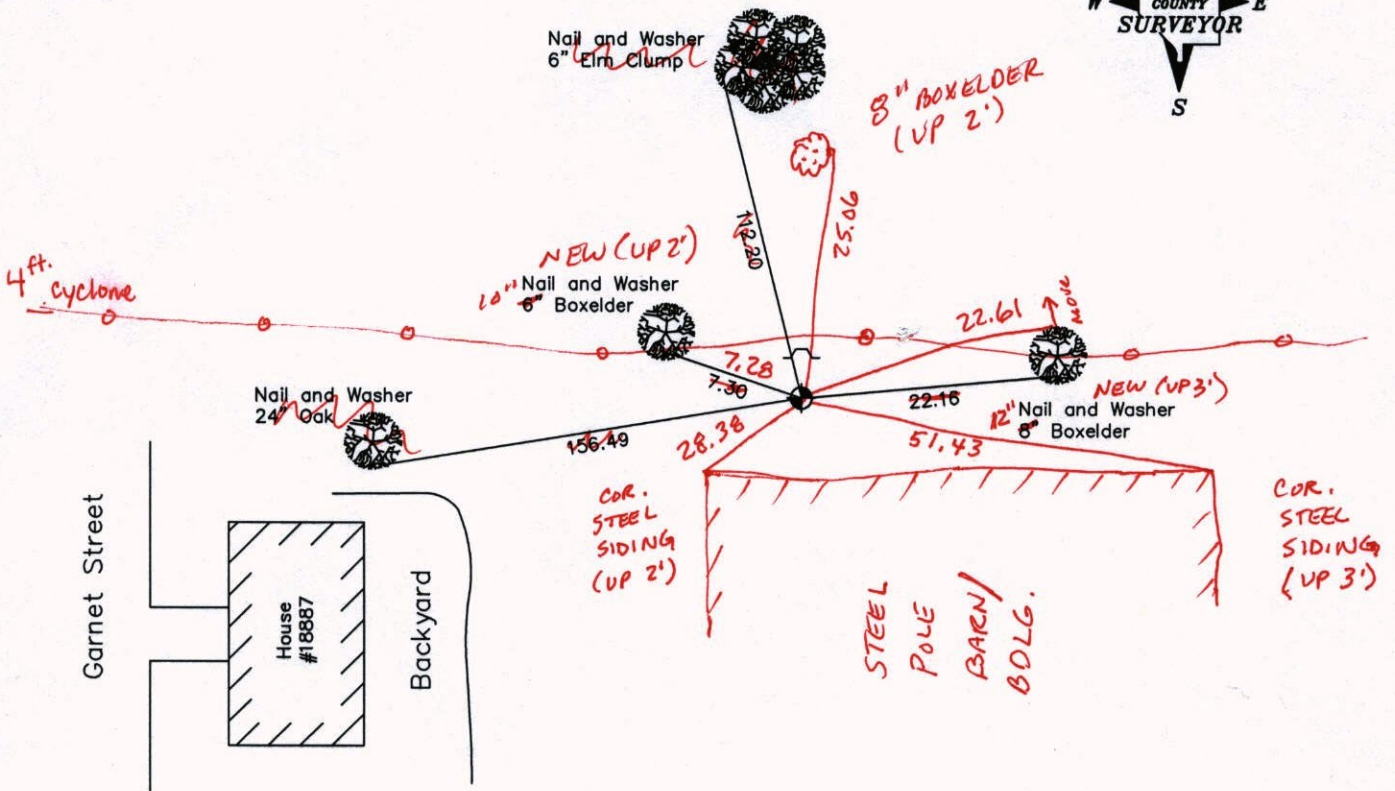 W
COUNTY
E
SURVEYOR
S
Nail and Washer
6" Elm Clump
8" BOXELDER
(UP 2')
112.20
25.06
NEW (UP 2')
10" Nail and Washer
6" Boxelder
4 ft. cyclone
22.61
move
7.28
7.30
22.16
NEW (UP 3')
12" Nail and Washer
8" Boxelder
Nail and Washer
24" Oak
156.49
28.38
51.43
COR.
STEEL
SIDING
(UP 2')
COR.
STEEL
SIDING
(UP 3')
STEEL
POLE
BARN/
BDLG.
Garnet Street
House
#18887
Backyard